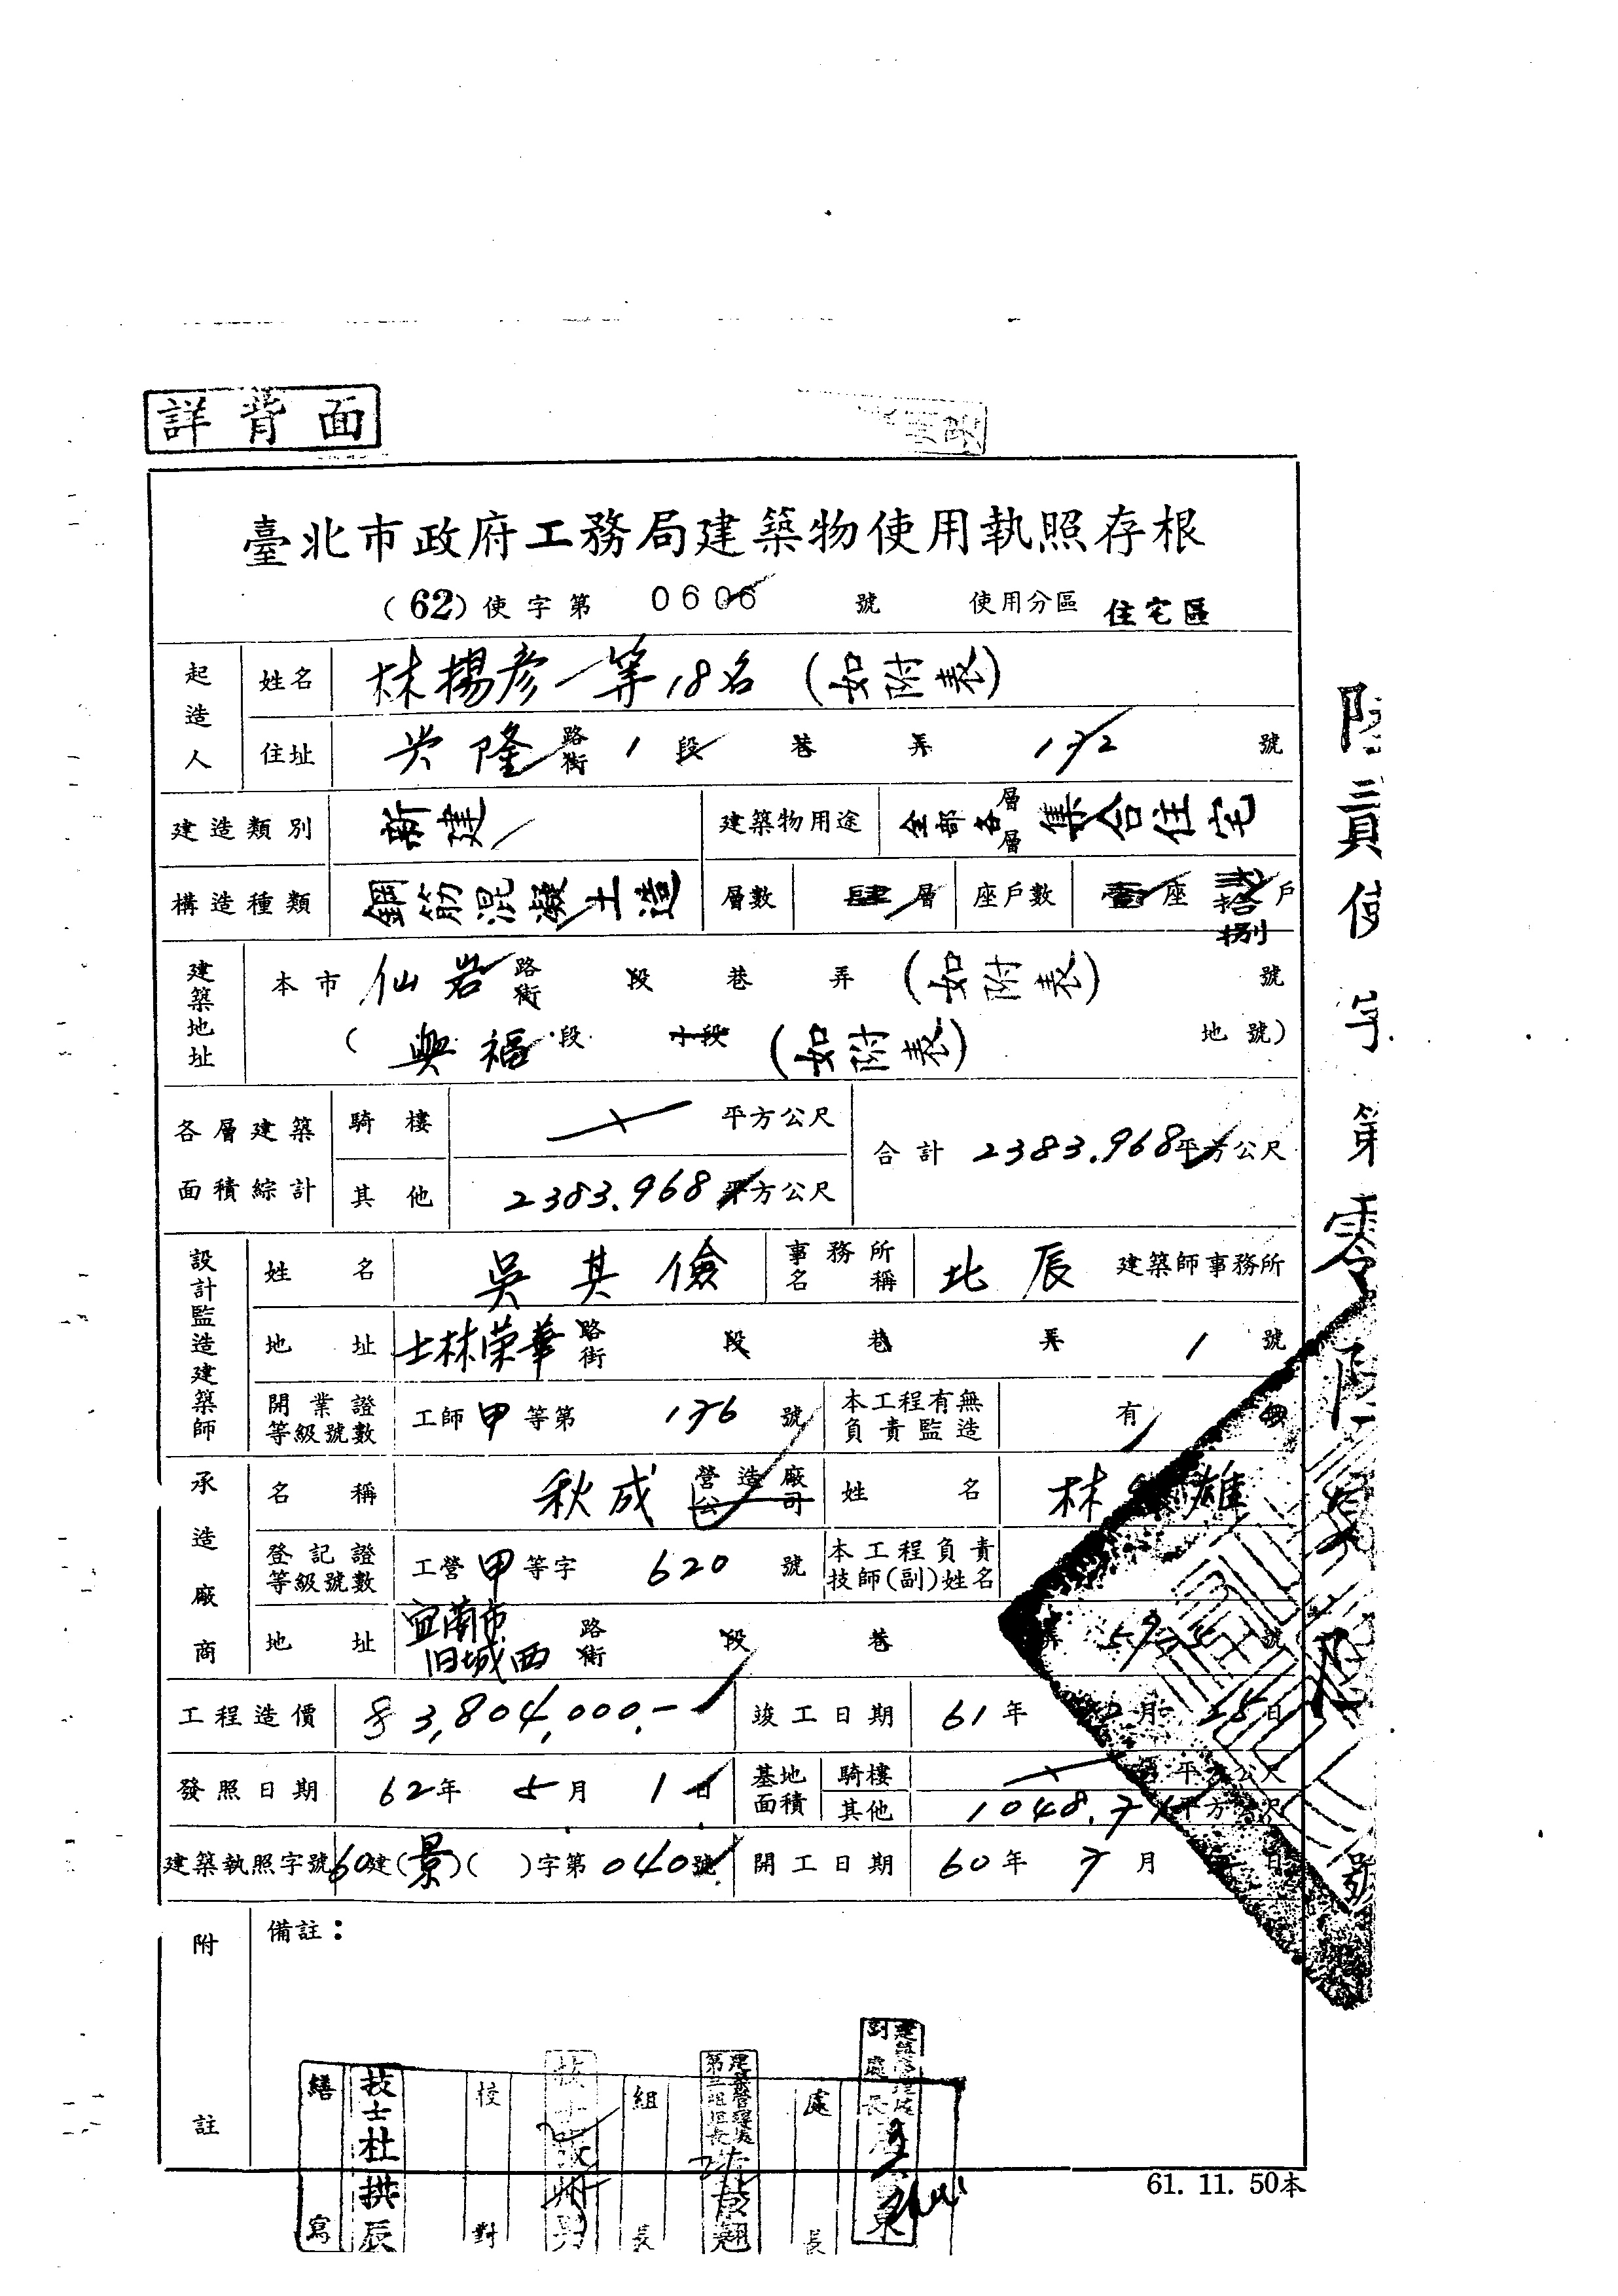 詳背面
臺北市政府工務局建築物使用執照存根
(62)使字第 0606 號 使用分區 住宅區
起造人 姓名 林楊彥等18名 (如附表)
住址 兴隆路街 1 段 巷 弄 172 號
建造類別 新建 建築物用途 全部各層層集合住宅
構造種類 鋼筋混凝土造 層數 肆層 座戶數 壹座 貳拾捌戶
建築地址 本市 仙岩路街 段 巷 弄 (如附表) 號
( 興福段 小段 (如附表) 地號)
各層建築面積綜計 騎樓 平方公尺 合計 2383.968平方公尺
其他 2383.968平方公尺
設計監造建築師 姓名 吳其儉 事務所名稱 北辰 建築師事務所
地址 士林荣華路街 段 巷 弄 1 號
開業證等級號數 工師甲等第 176 號 本工程有無負責監造 有
承造廠商 名稱 秋成 營造廠公司 姓名 林 雄
登記證等級號數 工營甲等字 620 號 本工程負責技師(副)姓名
地址 宜蘭市旧城西路街 段 巷 弄 號
工程造價 3,804,000.- 竣工日期 61年 月 日
發照日期 62年 5月 1日 基地面積 騎樓 平方公尺
其他 1048.71平方公尺
建築執照字號 60建(景)( )字第040號 開工日期 60年 7月 日
附註 備註：
繕寫 技士杜拱辰 校對 技士 組長 建築管理處第三組組長 處長 建築管理處副處長
61. 11. 50本
陸貳使字第零陸零陸號